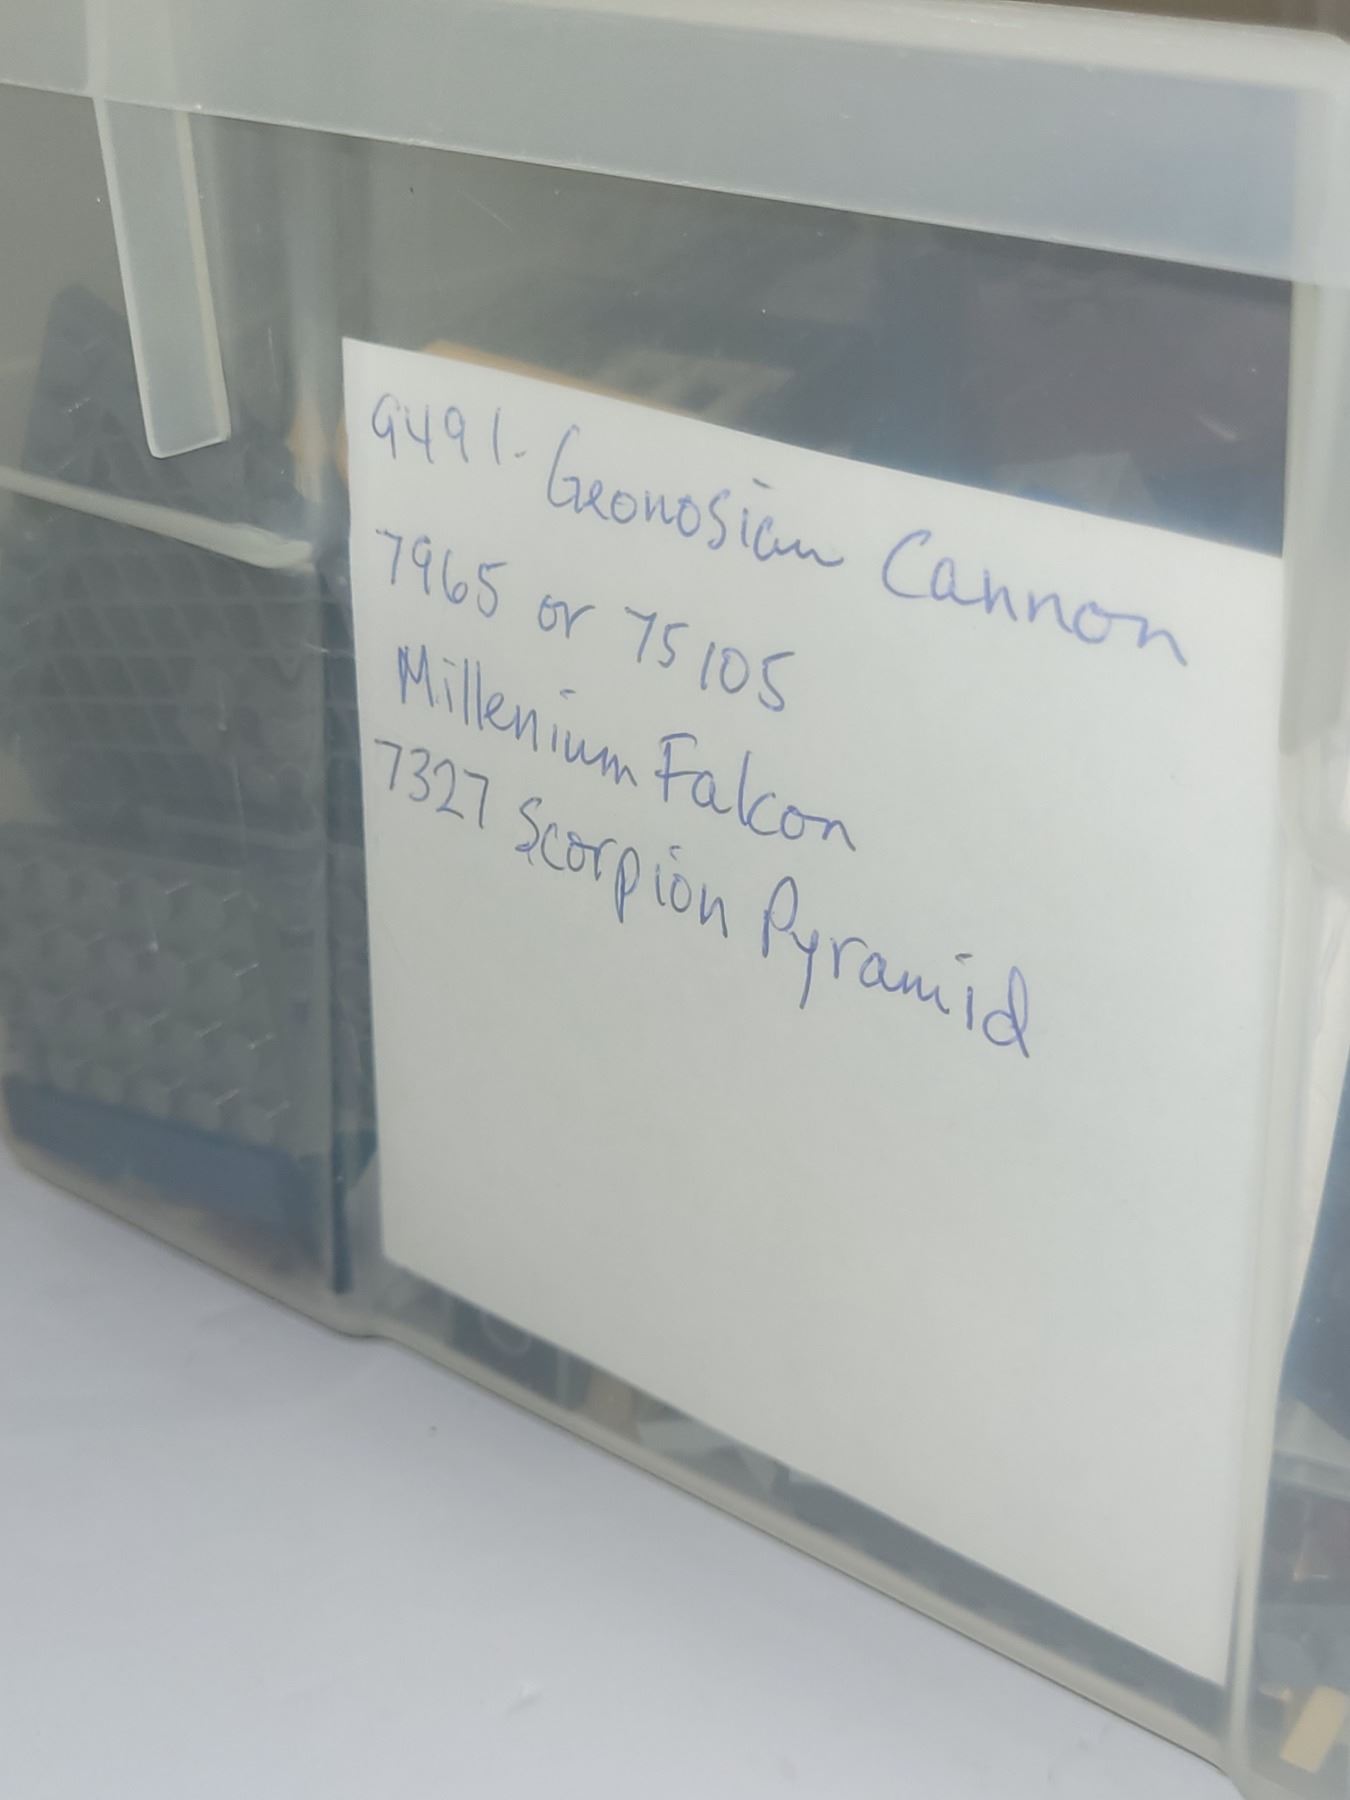 9491. Geonosian Cannon
7965 or 75105
Millenium Falcon
7327 Scorpion Pyramid